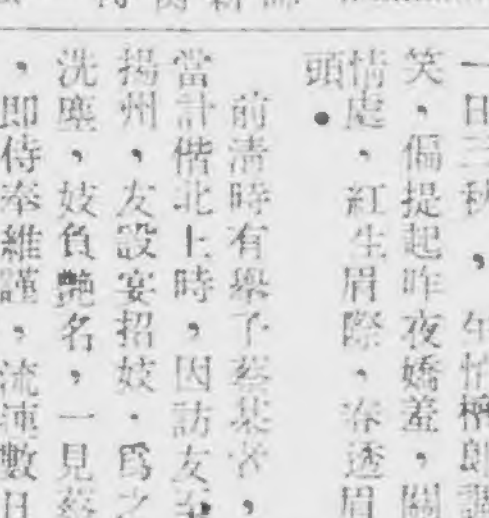 一日三秋，乍怕檀郎調
笑，偏提起昨夜嬌羞，關
情處，紅生眉際，春透眉
頭。
前清時有舉子蔡某者，
當計偕北上時，因訪友至
揚州，友設宴招妓，爲之
洗塵，妓負艷名，一見蔡
，即侍奉維謹，流連數日